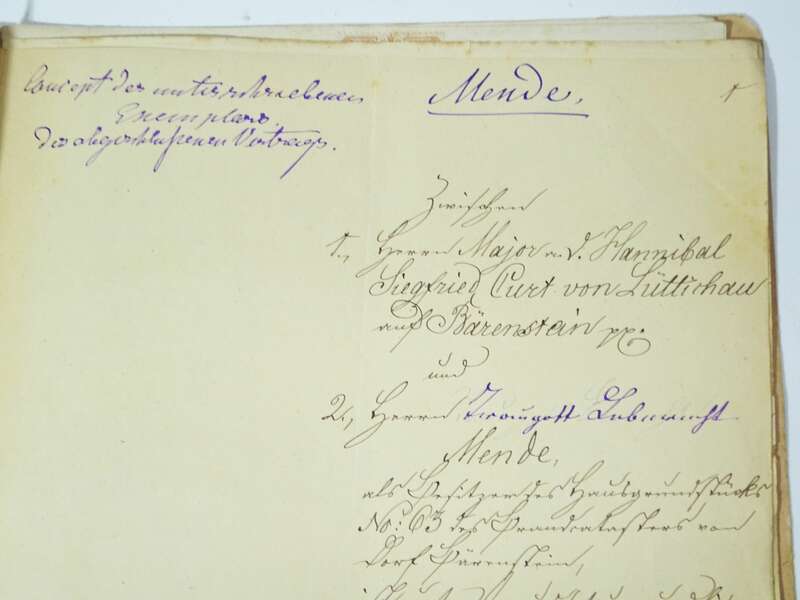 Concept des unterschriebenen
Exemplars
des abgeschlossenen Vertrags.
Mende.
1
Zwischen
1., Herrn Major a. d. Hannibal
Siegfried Curt von Lüttichau
auf Bärenstein pp.
und
2., Herrn Traugott Lebrecht
Mende,
als Besitzer des Hausgrundstücks
No: 63 des Brandcatasters von
Dorf Bärenstein,